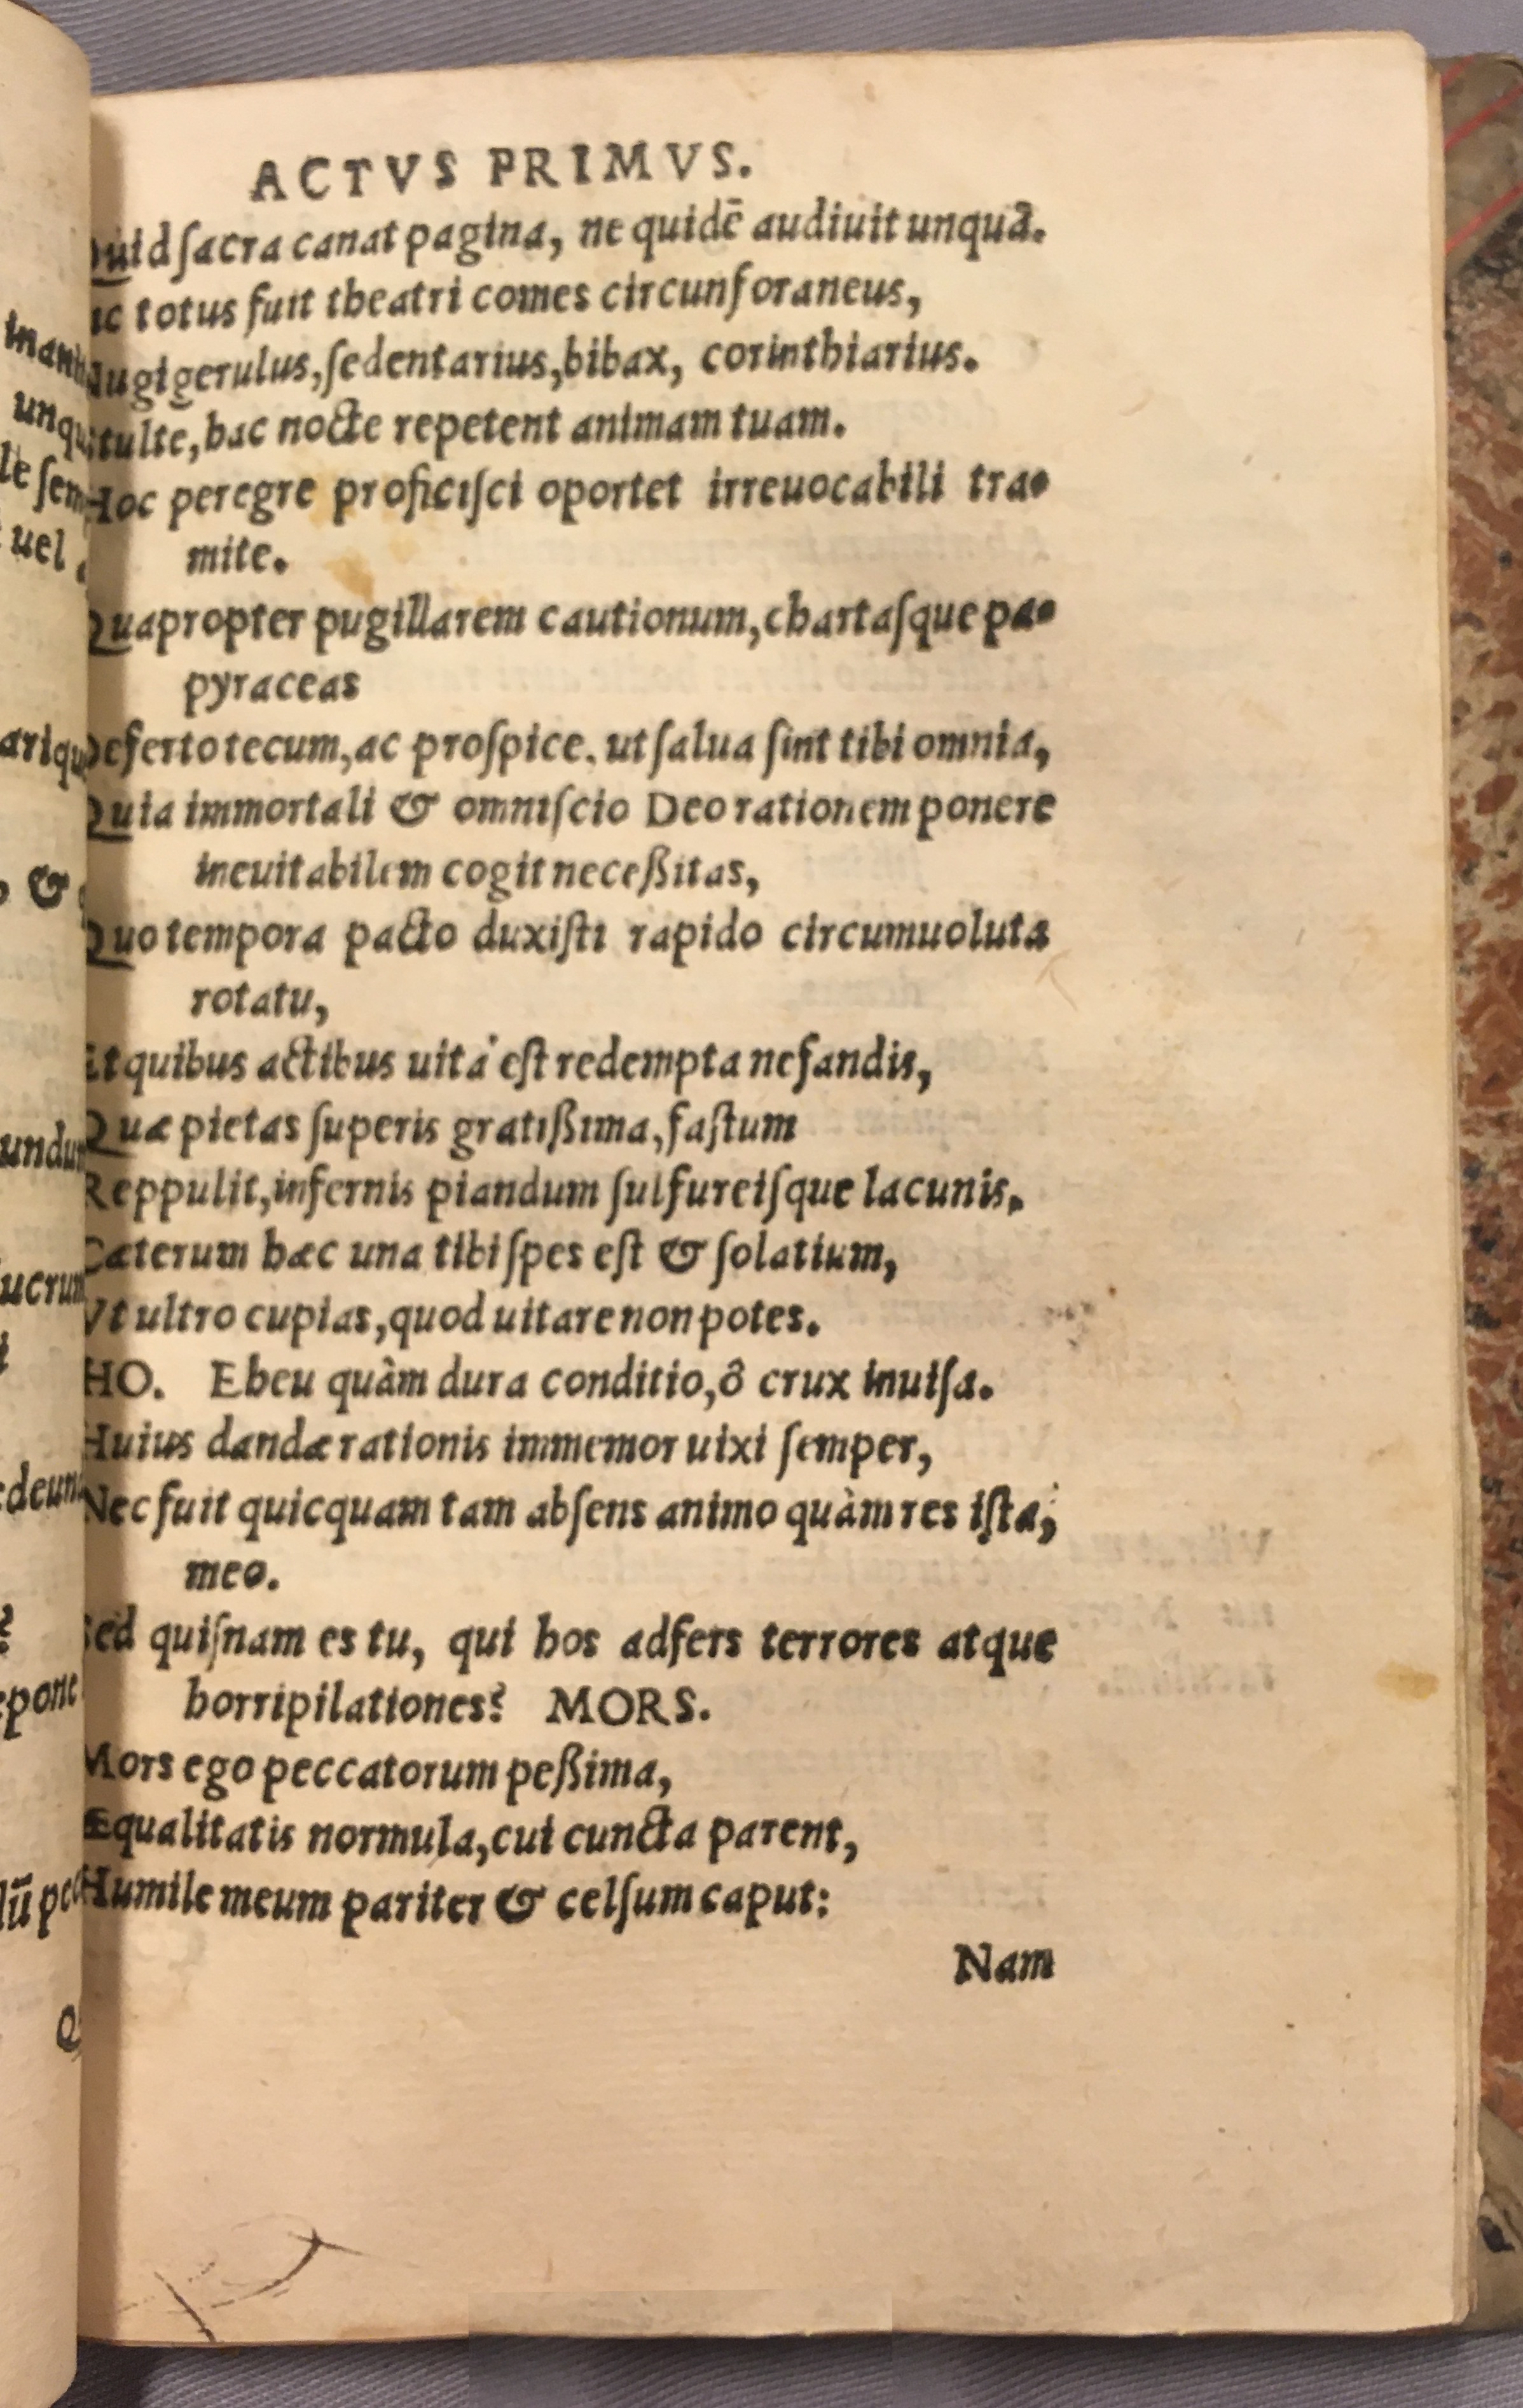 ACTVS PRIMVS.
Quid ſacra canat pagina, ne quidē audiuit unquā.
ac totus fuit theatri comes circunforaneus,
Nugigerulus, ſedentarius, bibax, corinthiarius.
Stulte, hac nocte repetent animam tuam.
Hoc peregre proficiſci oportet irreuocabili tra-
mite.
Quapropter pugillarem cautionum, chartaſque pa-
pyraceas
Deferto tecum, ac proſpice. ut ſalua ſint tibi omnia,
Quia immortali & omniſcio Deo rationem ponere
ineuitabilem cogit neceßitas,
Quo tempora pacto duxiſti rapido circumuoluta
rotatu,
Et quibus actibus uita eſt redempta nefandis,
Quæ pietas ſuperis gratißima, faſtum
Reppulit, infernis piandum ſulfureiſque lacunis.
Cæterum hæc una tibi ſpes eſt & ſolatium,
Vt ultro cupias, quod uitare non potes.
HO. Eheu quàm dura conditio, ô crux inuiſa.
Huius dandæ rationis immemor uixi ſemper,
Nec fuit quicquam tam abſens animo quàm res iſta,
meo.
Sed quiſnam es tu, qui hos adfers terrores atque
horripilationes? MORS.
Mors ego peccatorum peßima,
Æqualitatis normula, cui cuncta parent,
Humile meum pariter & celſum caput:
Nam